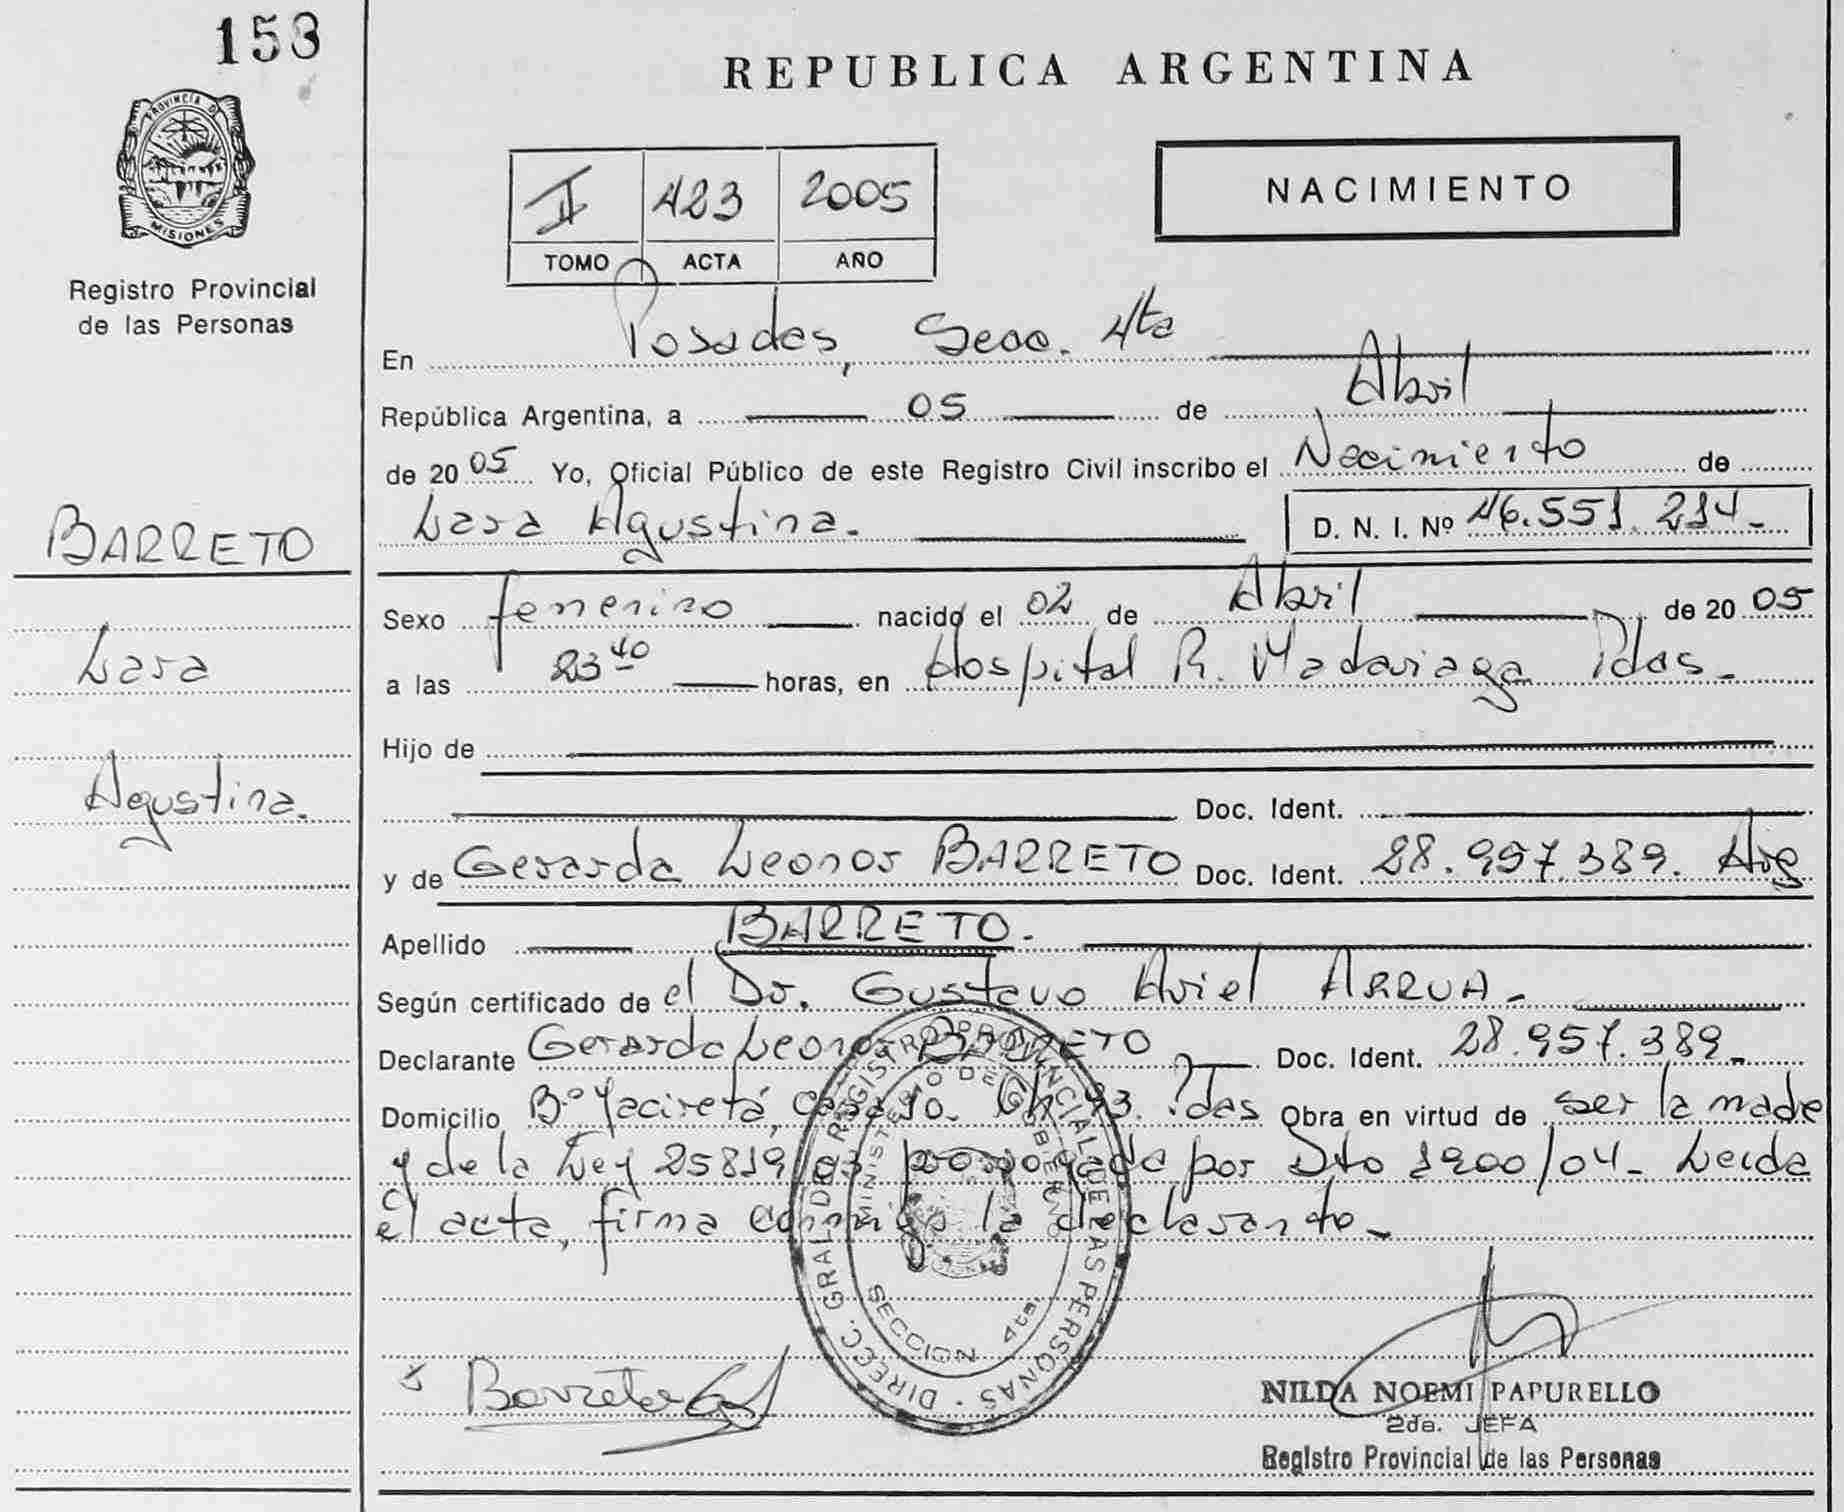 153
PROVINCIA D
MISIONES
Registro Provincial
de las Personas
BARRETO
Lara
Agustina.
REPUBLICA ARGENTINA
NACIMIENTO
II 423 2005
TOMO ACTA AÑO
En Posadas, Secc. 4ta
República Argentina, a 05 de Abril
de 2005 Yo, Oficial Público de este Registro Civil inscribo el Nacimiento de
Lara Agustina. D. N. I. Nº 46.551.214.-
Sexo femenino nacido el 02 de Abril de 2005
a las 23 40 horas, en Hospital R. Madariaga Pdas.-
Hijo de
Doc. Ident.
y de Gerarda Leonor BARRETO Doc. Ident. 28.957.389. Arg
Apellido BARRETO.
Según certificado de el Dr. Gustavo Ariel ARRUA.-
Declarante Gerarda Leonor BARRETO Doc. Ident. 28.957.389.-
Domicilio Bº Yaciretá, casa 10. Ch. 93. Pdas Obra en virtud de ser la madre
y de la Ley 25819/03 prorrogada por Dto 1900/04- Leida
el acta, firma conmigo la declarante.-
DIRECC. GRAL. DEL REGISTRO PROVINCIAL DE LAS PERSONAS
MINISTERIO DE GOBIERNO
SECCION 4ta.
Barreto
NILDA NOEMI PAPURELLO
2da. JEFA
Registro Provincial de las Personas